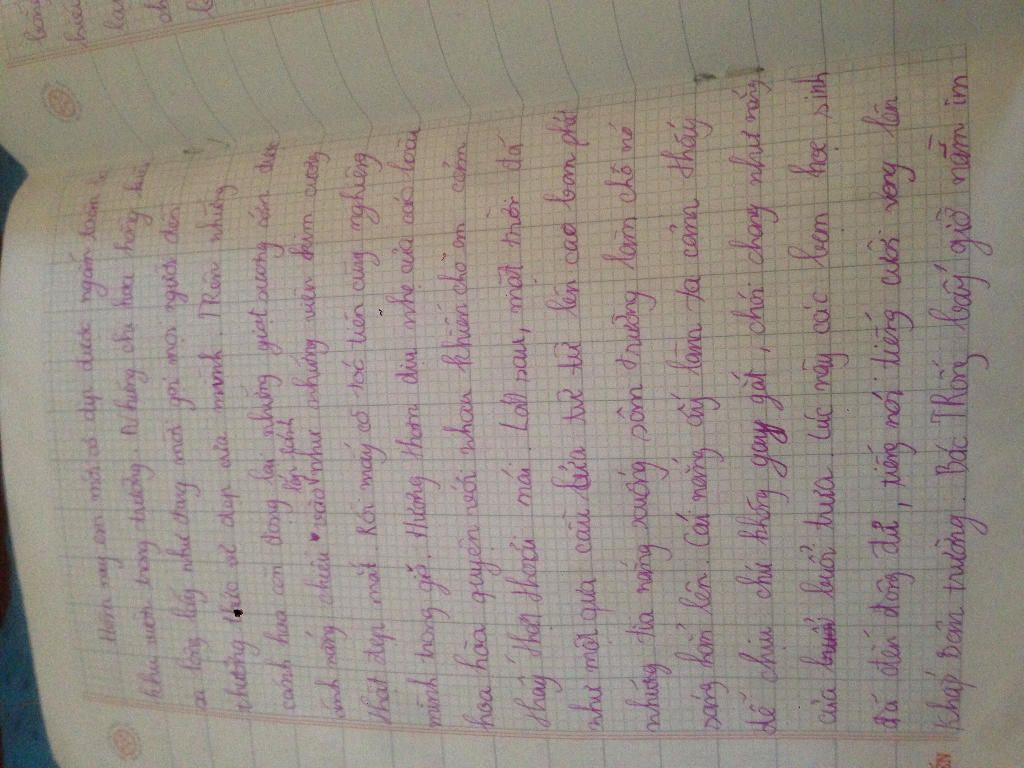 Hôm nay em mới có dịp được ngắm toàn
khu vườn trong trường. Những chú hoa hồng
xa lộng lẫy như đang mời gọi mọi người đến
thưởng thức vẻ đẹp của mình. Trên những
cánh hoa còn đọng lại những giọt sương
ánh nắng chiếu vào lấp lánh như những viên kim cương
thật đẹp mắt. Rồi mấy cô tóc tiên cũng nghiêng
mình trong gió. Hương thơm dịu nhẹ của các loài
hoa hòa quyện với nhau khiến cho em cảm
thấy thật thoải mái. Lát sau, mặt trời đã
như một quả cầu lửa từ từ lên cao ban phát
những tia nắng xuống sân trường làm cho nó
sáng hẳn lên. Cái nắng ấy làm ta cảm thấy
dễ chịu chứ không gay gắt, chói chang như nắng
của buổi trưa. Lúc này các bạn học sinh
đã đến đông đủ, tiếng nói tiếng cười vang lên
khắp sân trường. Bác Trống bấy giờ nằm im